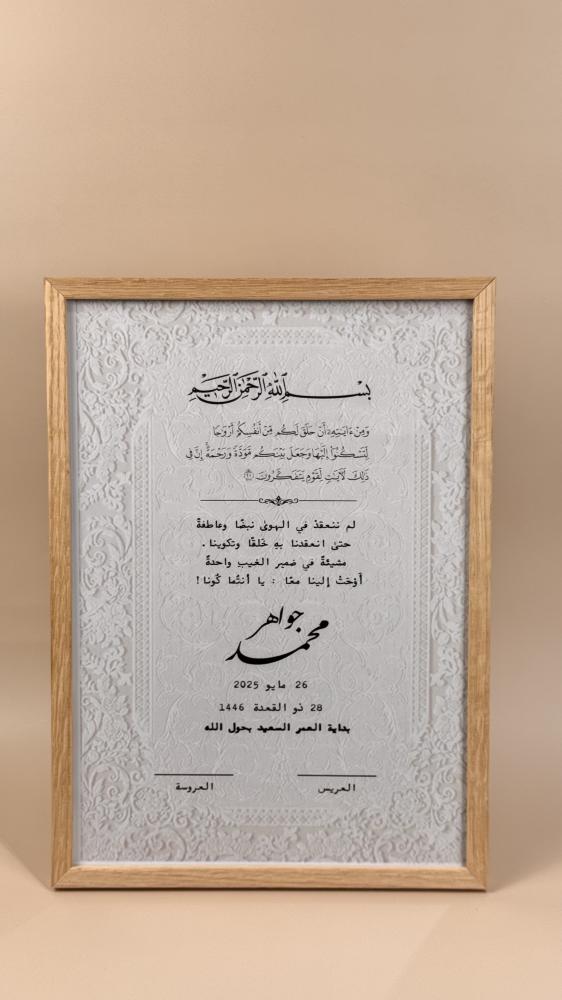 بِسْمِ اللَّهِ الرَّحْمَٰنِ الرَّحِيمِ
وَمِنْ ءَايَٰتِهِۦٓ أَنْ خَلَقَ لَكُم مِّنْ أَنفُسِكُمْ أَزْوَٰجًا
لِّتَسْكُنُوٓا۟ إِلَيْهَا وَجَعَلَ بَيْنَكُم مَّوَدَّةً وَرَحْمَةً ۚ إِنَّ فِى
ذَٰلِكَ لَءَايَٰتٍ لِّقَوْمٍ يَتَفَكَّرُونَ ٢١
لم ننعقدْ في الهوىٰ نبضًا وعاطفةً
حتىٰ انعقدنا بهِ خَلقًا وتكوينا.
مشيئةٌ في ضميرِ الغيبِ واحدةٌ
أَوْحَتْ إلينا معًا : يا أنتُما كُونا!
جواهر
محمد
26 مايو 2025
28 ذو القعدة 1446
بداية العمر السعيد بحول الله
العريس
العروسة